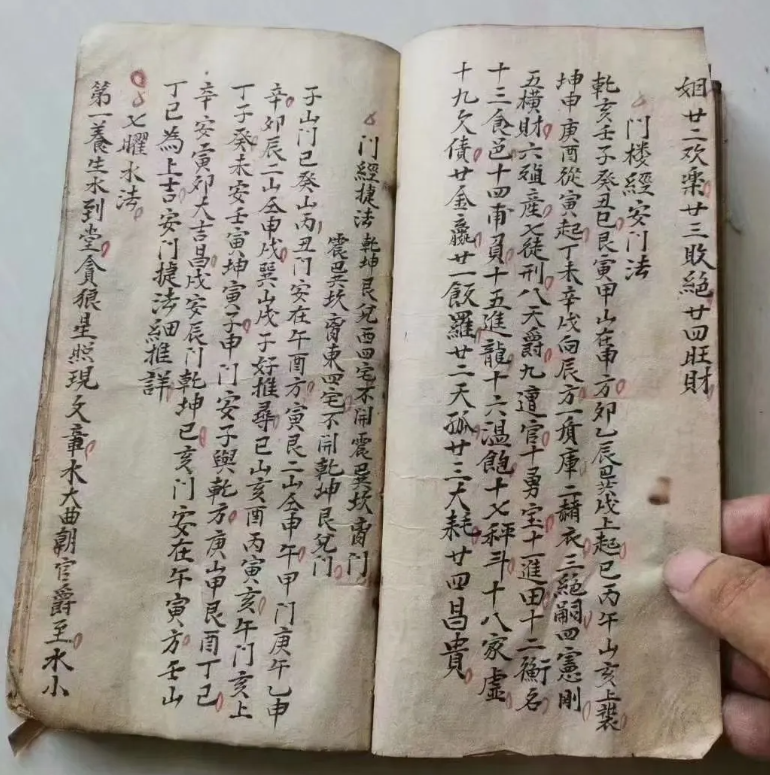 姻廿二欢樂廿三敗絕廿四旺財
門楼經安門法
乾亥壬子癸丑巳艮寅甲山在申方卯乙辰巽戌上起巳丙午山亥上裝
坤申庚酉從寅起丁未辛戌向辰方一負庫二赭衣三絕嗣四憲刚
五橫財六殖產七徒刑八天爵九遭官十勇宝十一進田十二衡名
十三食邑十四南員十五進龍十六温飽十七秤斗十八家虛
十九欠债廿金赢廿一飯羅廿二天孤廿三大耗廿四昌貴
門經捷法乾坤艮兌西四宅不開震巽坎离門
震巽坎离東四宅不開乾坤艮兌門
子山門巳癸山丙丑門安在午酉方寅艮二山壬申午甲門庚午乙申
辛卯辰二山壬申戌巽山戌子好推尋巳山亥酉丙寅亥午門亥上
丁子癸未安壬寅坤寅子申門安子與乾方庚山甲艮酉丁巳
辛安寅卯大吉昌戌安辰門乾坤巳亥門安在午寅方壬山
丁巳為上吉安門捷法細推詳
七曜水法
第一養生水到堂貪狼星照現文章水大曲朝官爵至水小